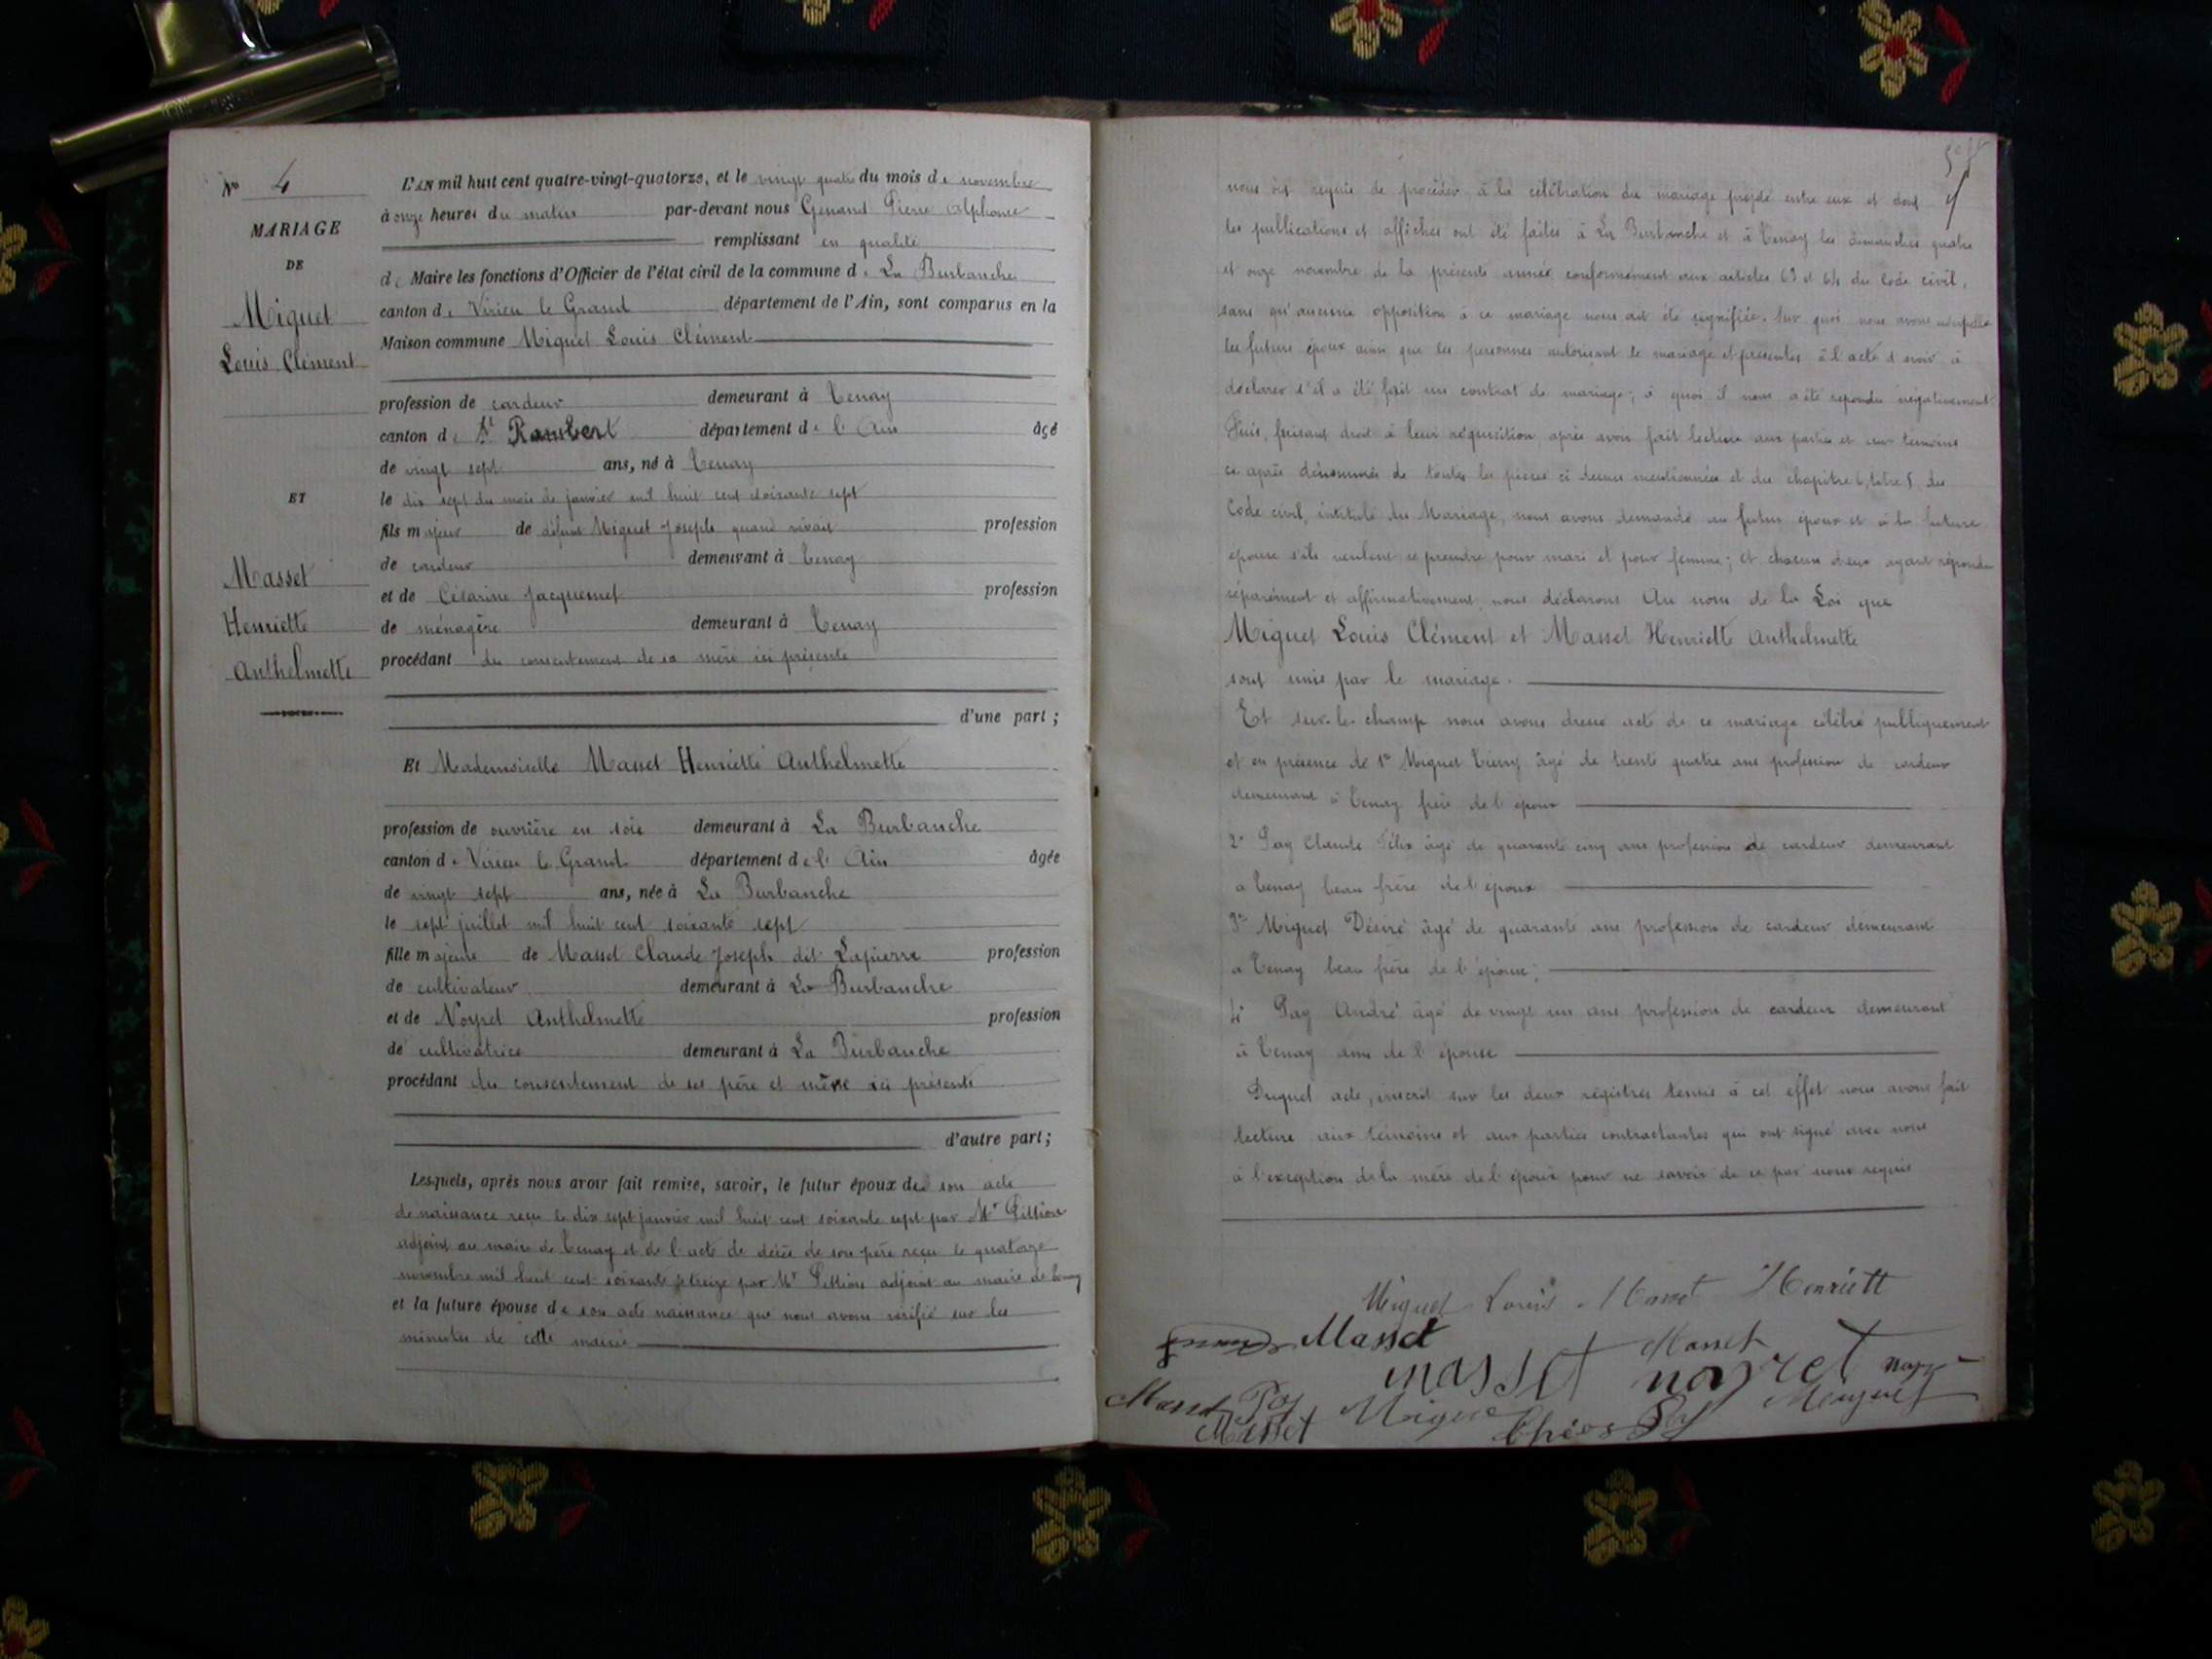 N° 4
MARIAGE
DE
Miguet
Louis Clément
ET
Masset
Henriette
Anthelmette
L'AN mil huit cent quatre-vingt-quatorze, et le vingt quatre du mois de novembre
à onze heures du matin par-devant nous Genand Pierre Alphonse
remplissant en qualité
de Maire les fonctions d'Officier de l'état civil de la commune de La Burbanche
canton de Virieu le Grand département de l'Ain, sont comparus en la
Maison commune Miguet Louis Clément
profession de cardeur demeurant à Tenay
canton de St Rambert département de l'Ain âgé
de vingt sept ans, né à Tenay
le dix sept du mois de janvier mil huit cent soixante sept
fils majeur de défunt Miguet Joseph quand vivait profession
de cardeur demeurant à Tenay
et de Césarine Jacquemet profession
de ménagère demeurant à Tenay
procédant du consentement de sa mère ici présente
d'une part;
Et Mademoiselle Masset Henriette Anthelmette
profession de ouvrière en soie demeurant à La Burbanche
canton de Virieu le Grand département de l'Ain âgée
de vingt sept ans, née à La Burbanche
le sept juillet mil huit cent soixante sept
fille majeure de Masset Claude Joseph dit Lapierre profession
de cultivateur demeurant à La Burbanche
et de Noyret Anthelmette profession
de cultivatrice demeurant à La Burbanche
procédant du consentement de ses père et mère ici présents
d'autre part;
Lesquels, après nous avoir fait remise, savoir, le futur époux de son acte
de naissance reçu le dix sept janvier mil huit cent soixante sept par Mr
adjoint au maire de Tenay et de l'acte de décès de son père reçu le quatorze
novembre mil huit cent soixante treize par Mr adjoint au maire de Tenay
et la future épouse de son acte naissance que nous avons vérifié sur les
minutes de cette mairie
nous ont requis de procéder à la célébration du mariage projeté entre eux et dont
les publications et affiches ont été faites à La Burbanche et à Tenay les dimanches quatre
et onze novembre de la présente année conformément aux articles 63 et 64 du Code civil,
sans qu'aucune opposition à ce mariage nous ait été signifiée. Sur quoi nous avons interpellé
les futurs époux ainsi que les personnes autorisant le mariage et présentes à l'acte d'avoir à
déclarer s'il a été fait un contrat de mariage; à quoi il nous a été répondu négativement
Puis, faisant droit à leur réquisition après avoir fait lecture aux parties et aux témoins
ci après dénommés de toutes les pièces ci dessus mentionnées et du chapitre 6, titre 5 du
Code civil, intitulé du Mariage, nous avons demandé au futur époux et à la future
épouse s'ils veulent se prendre pour mari et pour femme; et chacun d'eux ayant répondu
séparément et affirmativement, nous déclarons Au nom de la Loi que
Miguet Louis Clément et Masset Henriette Anthelmette
sont unis par le mariage.
Et sur-le-champ nous avons dressé acte de ce mariage célébré publiquement
et en présence de 1° Miguet âgé de trente quatre ans profession de cardeur
demeurant à Tenay frère de l'époux
2° Pay Claude Félix âgé de quarante cinq ans profession de cardeur demeurant
à Tenay beau frère de l'époux
3° Miguet Désiré âgé de quarante ans profession de cardeur demeurant
à Tenay beau frère de l'épouse;
4° Pay André âgé de vingt un ans profession de cardeur demeurant
à Tenay ami de l'épouse
Duquel acte, inscrit sur les deux régistres tenus à cet effet nous avons fait
lecture aux témoins et aux parties contractantes qui ont signé avec nous
à l'exception de la mère de l'époux pour ne savoir de ce par nous requis
Miguet Louis Masset Henriett
Masset Masset
masset noyret
Masset Pay Miguet Miguet
Masset